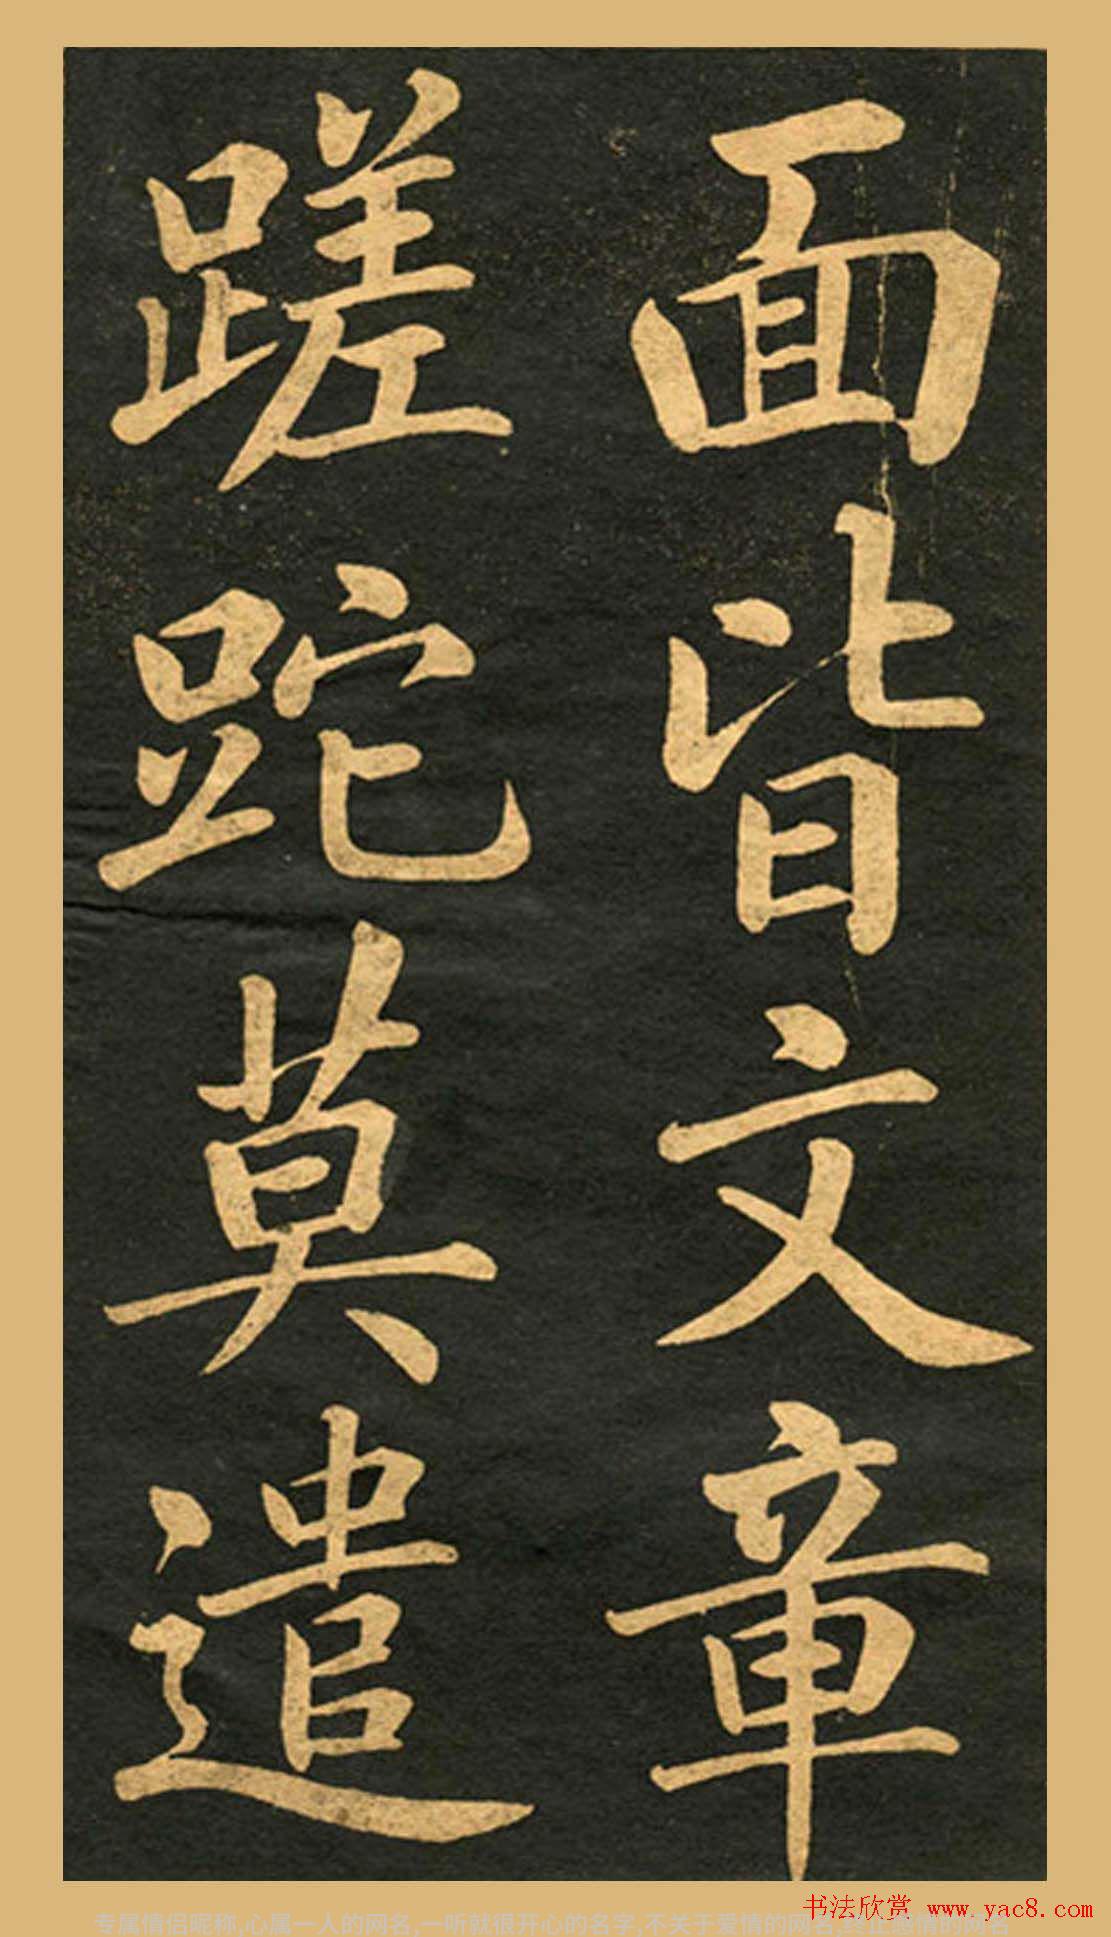 面皆文章
蹉跎莫遣
书法欣赏 www.yac8.com
专属情侣昵称,心属一人的网名,一听就很开心的名字,不关于爱情的网名